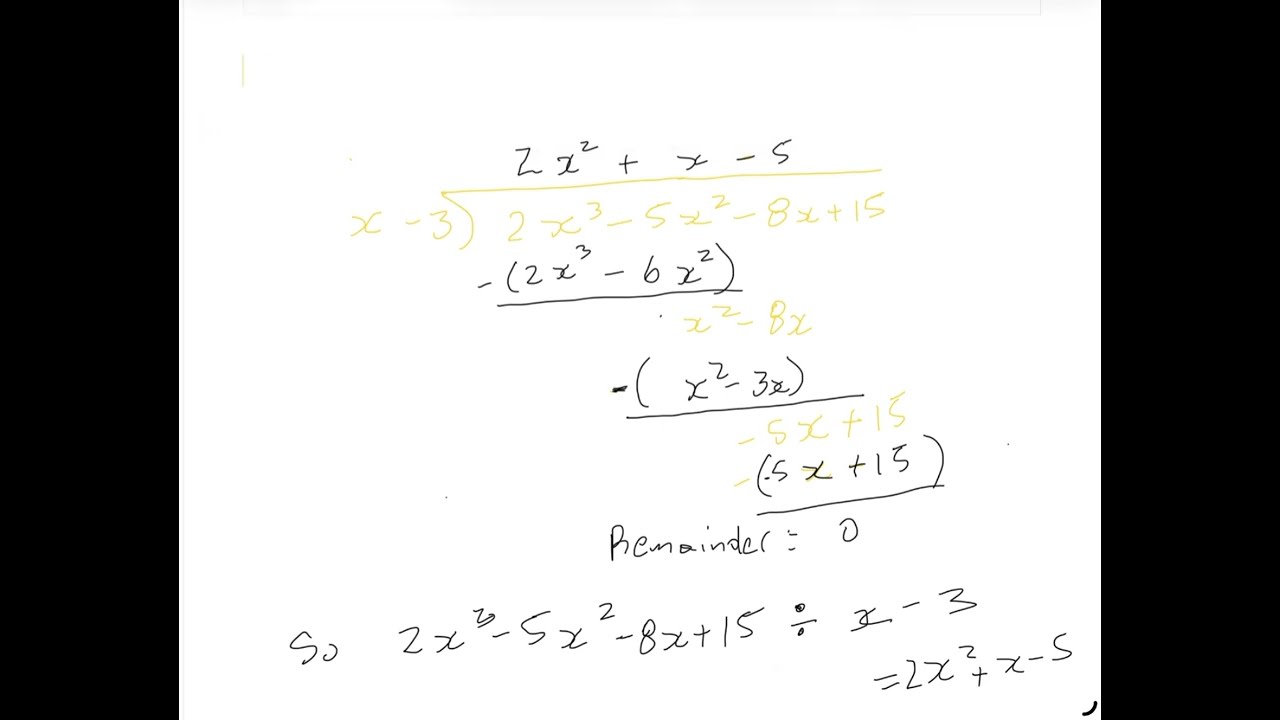 2x² + x - 5
x - 3) 2x³ - 5x² - 8x + 15
-(2x³ - 6x²)
x² - 8x
-( x² - 3x)
- 5x + 15
-(-5x + 15)
Remainder = 0
So 2x³ - 5x² - 8x + 15 ÷ x - 3
= 2x² + x - 5